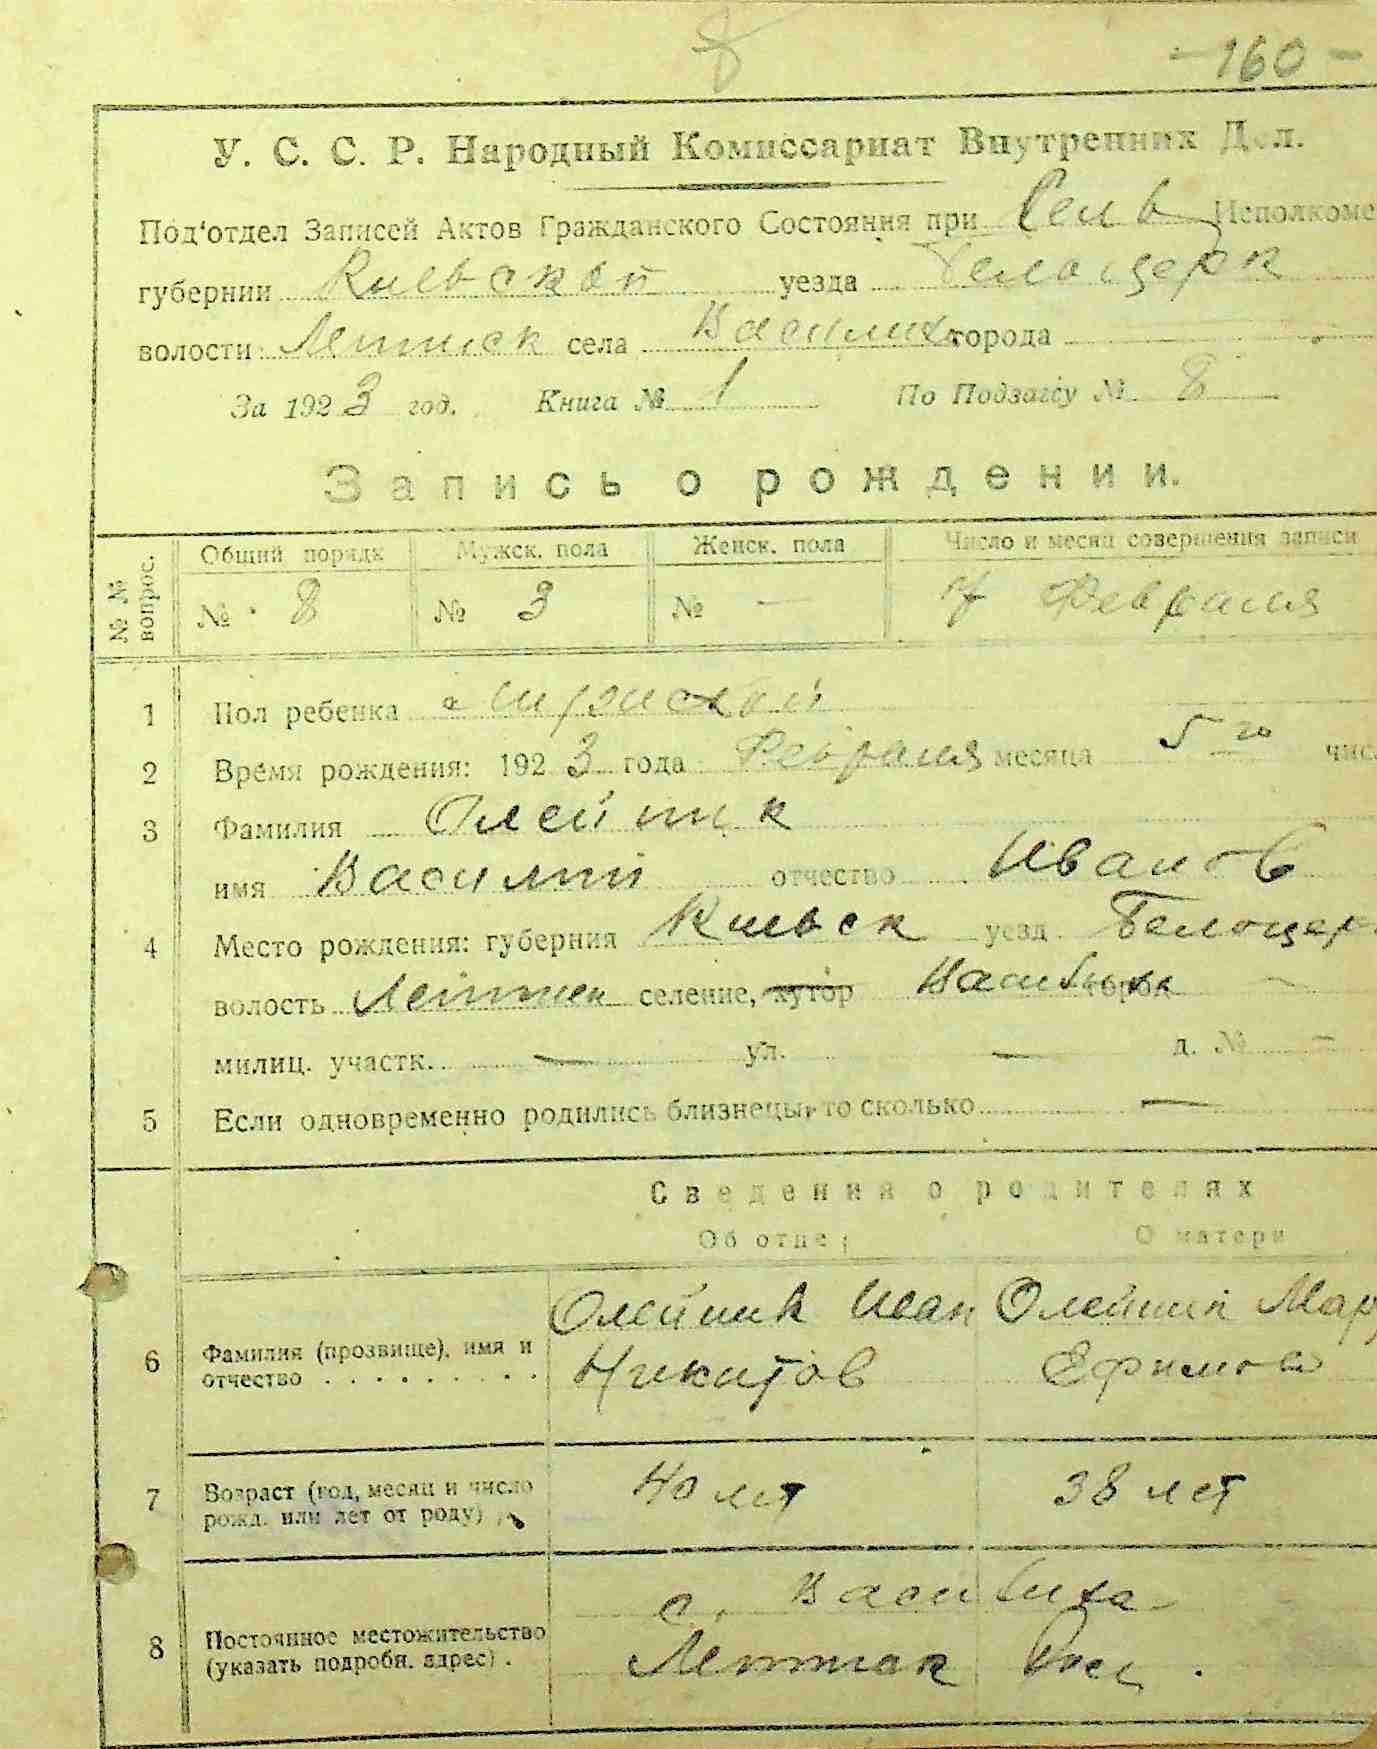 8
- 160 -
У. С. С. Р. Народный Комиссариат Внутренних Дел.
Под‘отдел Записей Актов Гражданского Состояния при Сельв Исполкоме
губернии Киевской уезда Белоцерк
волости села города
За 1923 год. Книга № 1 По Подзагсу № 8
Запись о рождении.
№ № вопрос. Общий порядк Мужск. пола Женск. пола Число и месяц совершения записи
№ 8 № 3 № — 7 Февраля
1 Пол ребенка Мужской
2 Время рождения: 1923 года Февраля месяца 5го чис
3 Фамилия Олейник
имя Василий отчество Иванов
4 Место рождения: губерния Киевск уезд Белоцерк
волость селение, хутор город —
милиц. участк. — ул. — д. № —
5 Если одновременно родились близнецы, то сколько —
Сведения о родителях
Об отце: О матери
Олейник Иван Олейник Мар
6 Фамилия (прозвище), имя и
отчество . . . . . . . . . Никитов Ефимова
7 Возраст (год, месяц и число 40 лет 38 лет
рожд. или лет от роду)
с.
8 Постоянное местожительство
(указать подробн. адрес) .